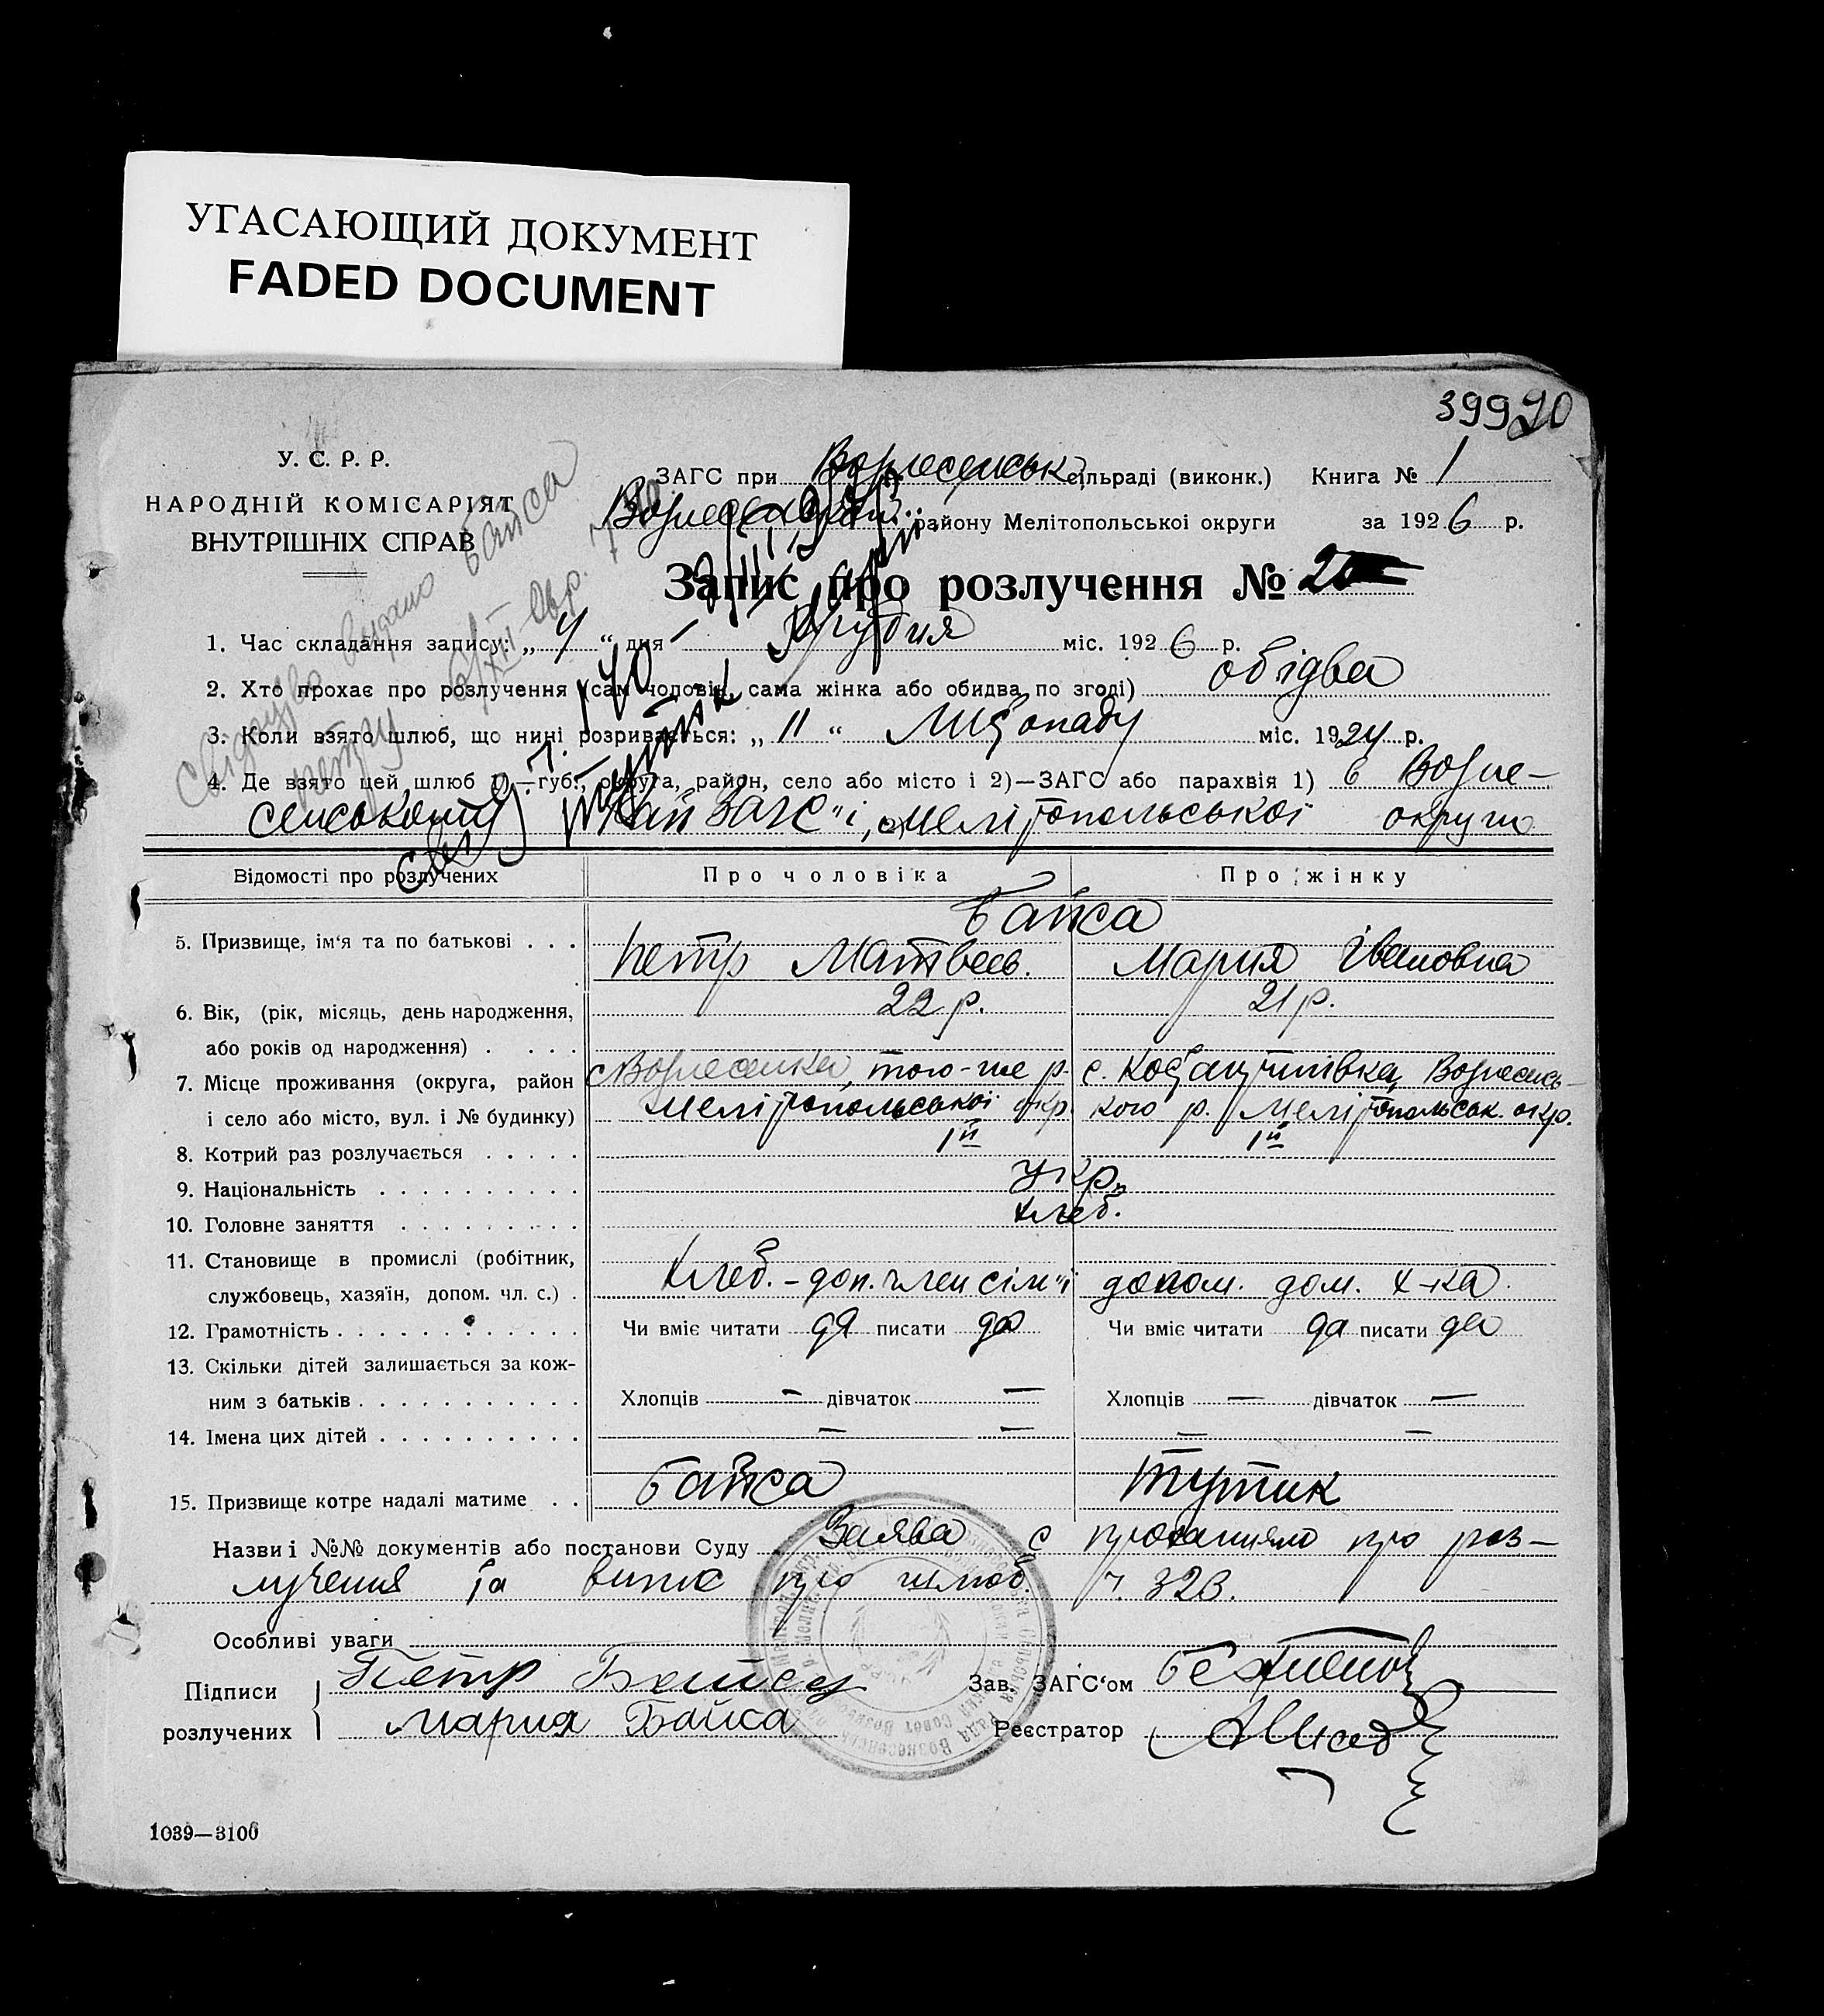 УГАСАЮЩИЙ ДОКУМЕНТ
FADED DOCUMENT
39920
У. С. Р. Р.
НАРОДНІЙ КОМІСАРІЯТ
ВНУТРІШНІХ СПРАВ
ЗАГС при Вознесенськ сільраді (виконк.) Книга № 1
району Мелітопольської округи за 1926 р.
Запис про розлучення №
1. Час складання запису: „4“ дня Грудня міс. 1926 р.
2. Хто прохає про розлучення (сам чоловік, сама жінка або обидва по згоді) обідва
3. Коли взято шлюб, що нині розривається: „11“ Листопаду міс. 1924 р.
4. Де взято цей шлюб 1)—губ., округа, район, село або місто і 2)—ЗАГС або парахвія 1) в Возне-
сенському Рай Загс'і, Мелітопольської округи
Відомості про розлучених Про чоловіка Про жінку
Байса
5. Призвище, ім'я та по батькові . . . Петр Матвеев. Мария Івановна
6. Вік, (рік, місяць, день народження, 22 р. 21 р.
або років од народження) . . . .
7. Місце проживання (округа, район с Вознесенка, того-же р. с. Костянтинівка, Вознесенсь-
і село або місто, вул. і № будинку) Мелітопольської окр. кого р. Мелітопольськ. окр.
8. Котрий раз розлучається . . . . . 1й 1й
9. Національність . . . . . . . . . . укр.
10. Головне заняття . . . . . . . . . хлеб.
11. Становище в промислі (робітник,
службовець, хазяїн, допом. чл. с.) . хлеб. - доп. член сім'ї допом. дом. х-ка.
12. Грамотність . . . . . . . . . . . . Чи вміє читати да писати да Чи вміє читати да писати да
13. Скільки дітей залишається за кож-
ним з батьків . . . . . . . . . . . Хлопців — дівчаток — Хлопців — дівчаток —
14. Імена цих дітей . . . . . . . . . . — — — —
15. Призвище котре надалі матиме . . Байса Тутик
Назви і №№ документів або постанови Суду Заява с проханням про роз-
лучення та випис про шлюб. ч. 323.
Особливі уваги
Підписи Петр Байса Зав. ЗАГС'ом
розлучених Мария Байса Реєстратор
1039—3100